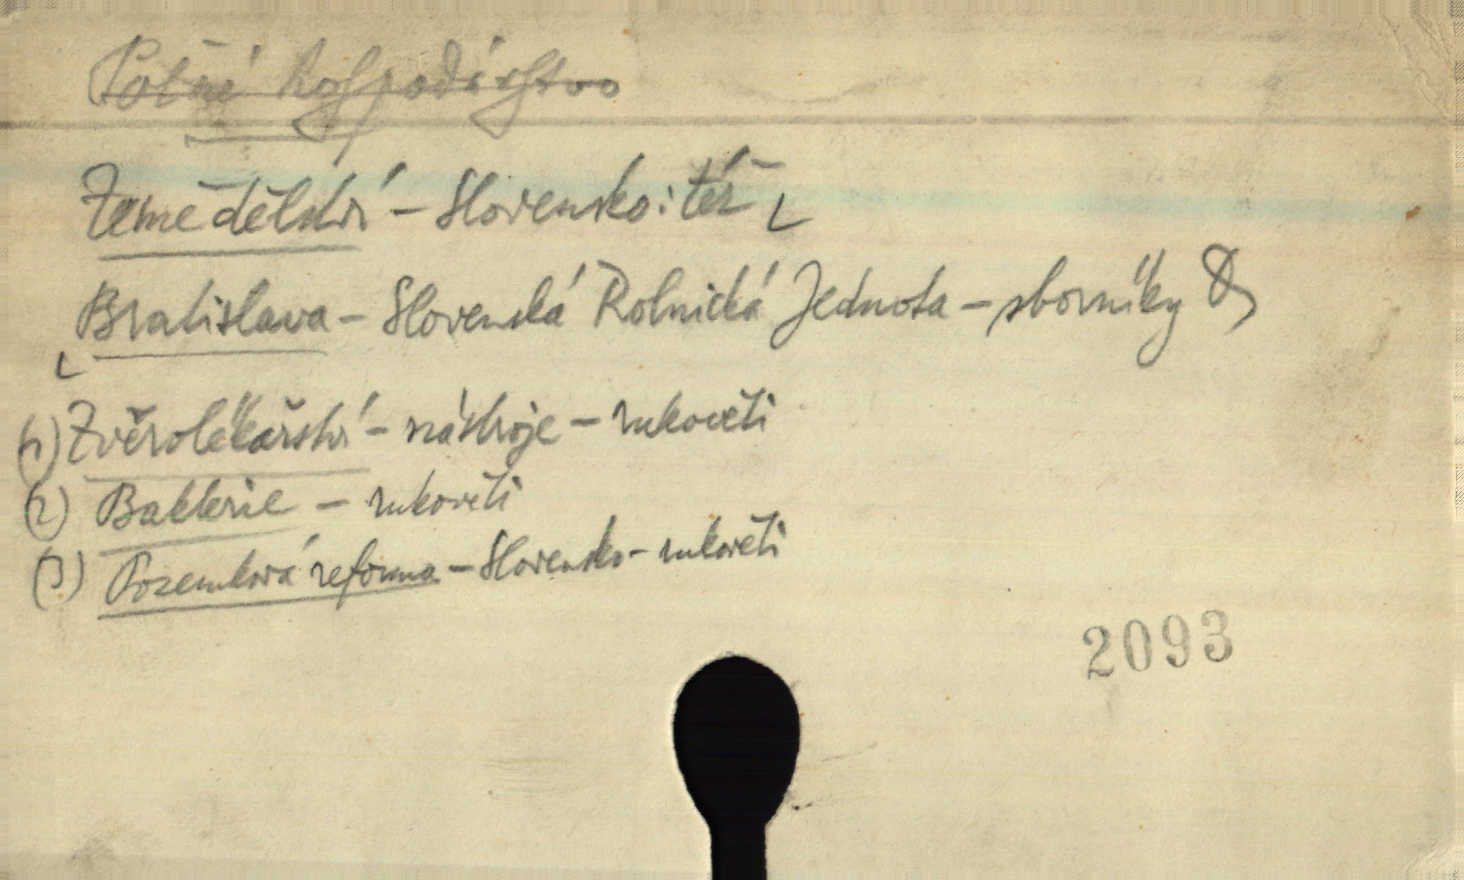 Polné hospodárstvo
Zemědělství - Slovensko: též
Bratislava - Slovenská Rolnická Jednota - sborníky
(1) Zvěrolékařství - nástroje - rukověti
(2) Bakterie - rukověti
(3) Pozemková reforma - Slovensko - rukověti
2093